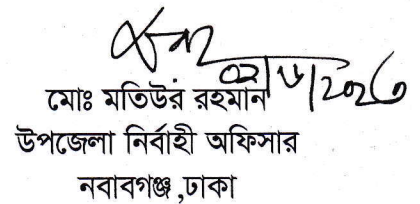 ০২/৮/২০২৩
মোঃ মতিউর রহমান
উপজেলা নির্বাহী অফিসার
নবাবগঞ্জ ,ঢাকা